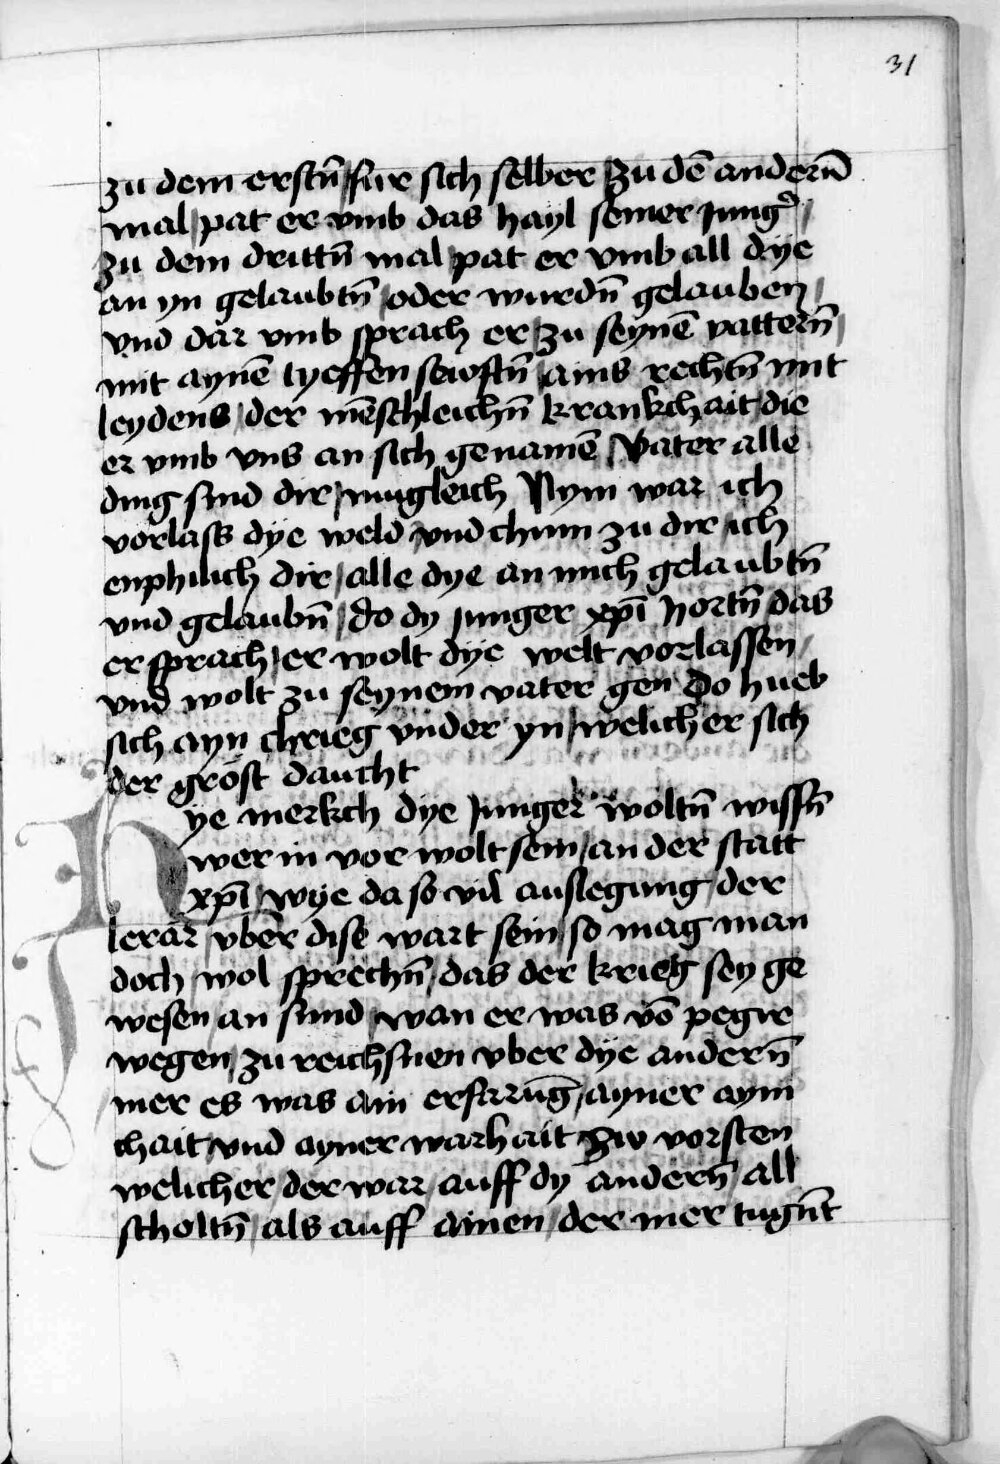 31
zu dem erstn̄ / fur sich selber / zu dē andern̄
mal / pat er vmb das hayl seiner Jungˀ /
zu dem drittn̄ mal / pat er vmb all dye
an yn gelaubtn̄ / oder wurdn̄ gelauben /
vnd dar vmb sprach er / zu seynē vattern̄ /
mit aynē tyeffen sewftn̄ / ains rechtn̄ mit
leydens / der mēschleichn̄ krankchait / die
er vmb vns an sich genamē / Vater alle
ding sind dir / mugleich Nym war ich
vorlass dye weld / vnd chum zu dir / ich
enphilich dir / alle dye an mich gelaubtn̄
vnd gelaubn̄ / do dy Junger xp̄i hortn̄ das
er sprach / er wolt dye welt vorlassen /
vnd wolt zu seynem vater gen Do hueb
sich ayn chrieg vnder yn / welicher sich
der gröst daucht
Hye merkch dye Junger woltn̄ wissn̄
wer in vor wolt sein / an der statt
xp̄i / wye da so vil auslegung / der
lerär / vber dise wart sein / so mag man
doch / wol sprechn̄ / das der krieg sey ge
wesen / an sund / wan er was vō pegir
wegen / zu reichsnen vber dye andern̄
mer es was ain erfarūg / ayner aym
chait / vnd ayner warhait zw vorsten
welicher / der war / auff dy andern̄ / all
scholtn̄ / als auff ainen / der mer tugn̄t